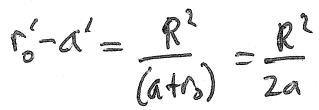 r₀' - a' = R² / (a+r₀) = R² / 2a